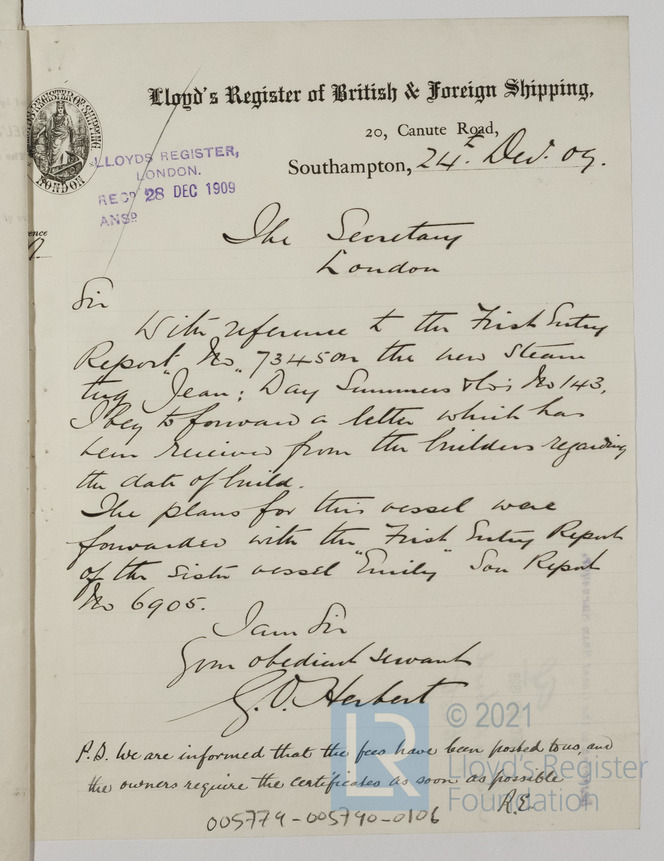 Lloyd's Register of British & Foreign Shipping,
20, Canute Road,
Southampton, 24th Dec. 09.
LLOYD'S REGISTER OF SHIPPING
LONDON
LLOYDS REGISTER,
LONDON.
RECD 28 DEC 1909
ANSD
ence
The Secretary
London
Sir
With reference to the First Entry
Report No 7345 on the new Steam
tug "Jean", Day Summers & Co's No 143,
I beg to forward a letter which has
been received from the builders regarding
the date of build.
The plans for this vessel were
forwarded with the First Entry Report
of the sister vessel "Emily" Sou Report
No 6905.
I am Sir
Your obedient servant
G. O. Herbert
P.S. We are informed that the fees have been posted to us, and
the owners require the certificates as soon as possible
R.E.
LR
© 2021
Lloyd's Register
Foundation
005779-005790-0106